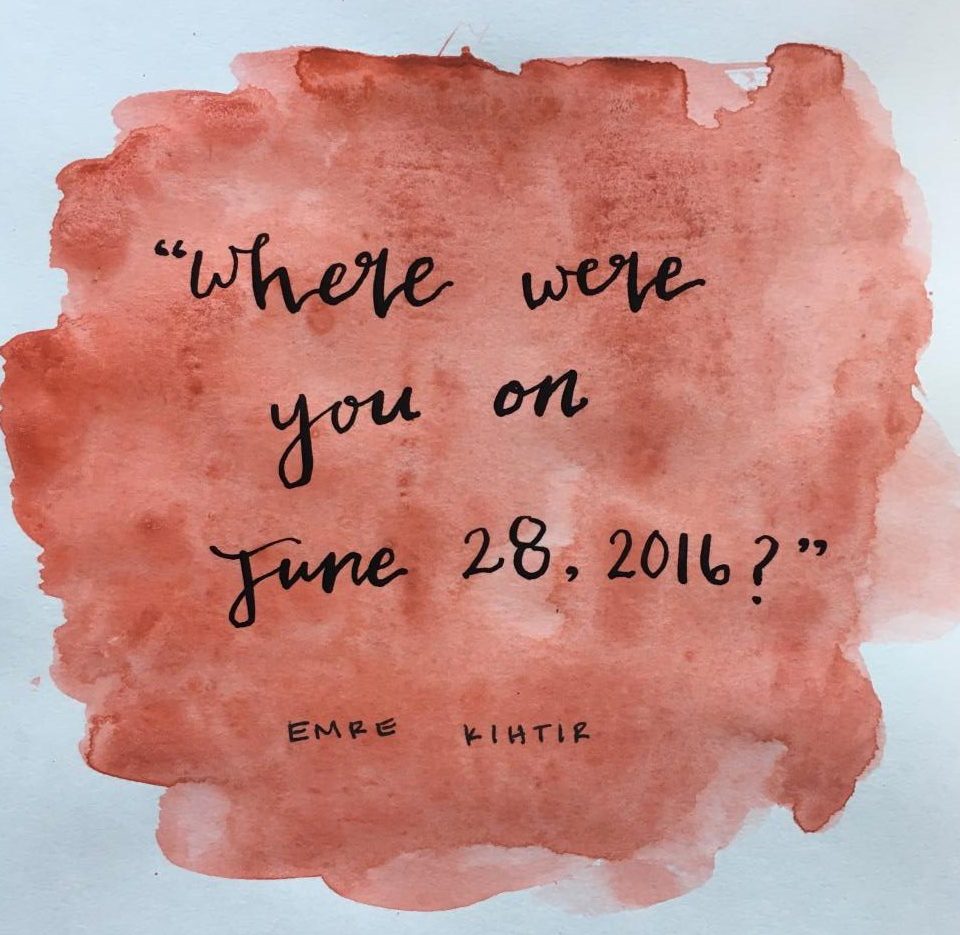 “Where were
you on
June 28, 2016?”
EMRE KIHTIR